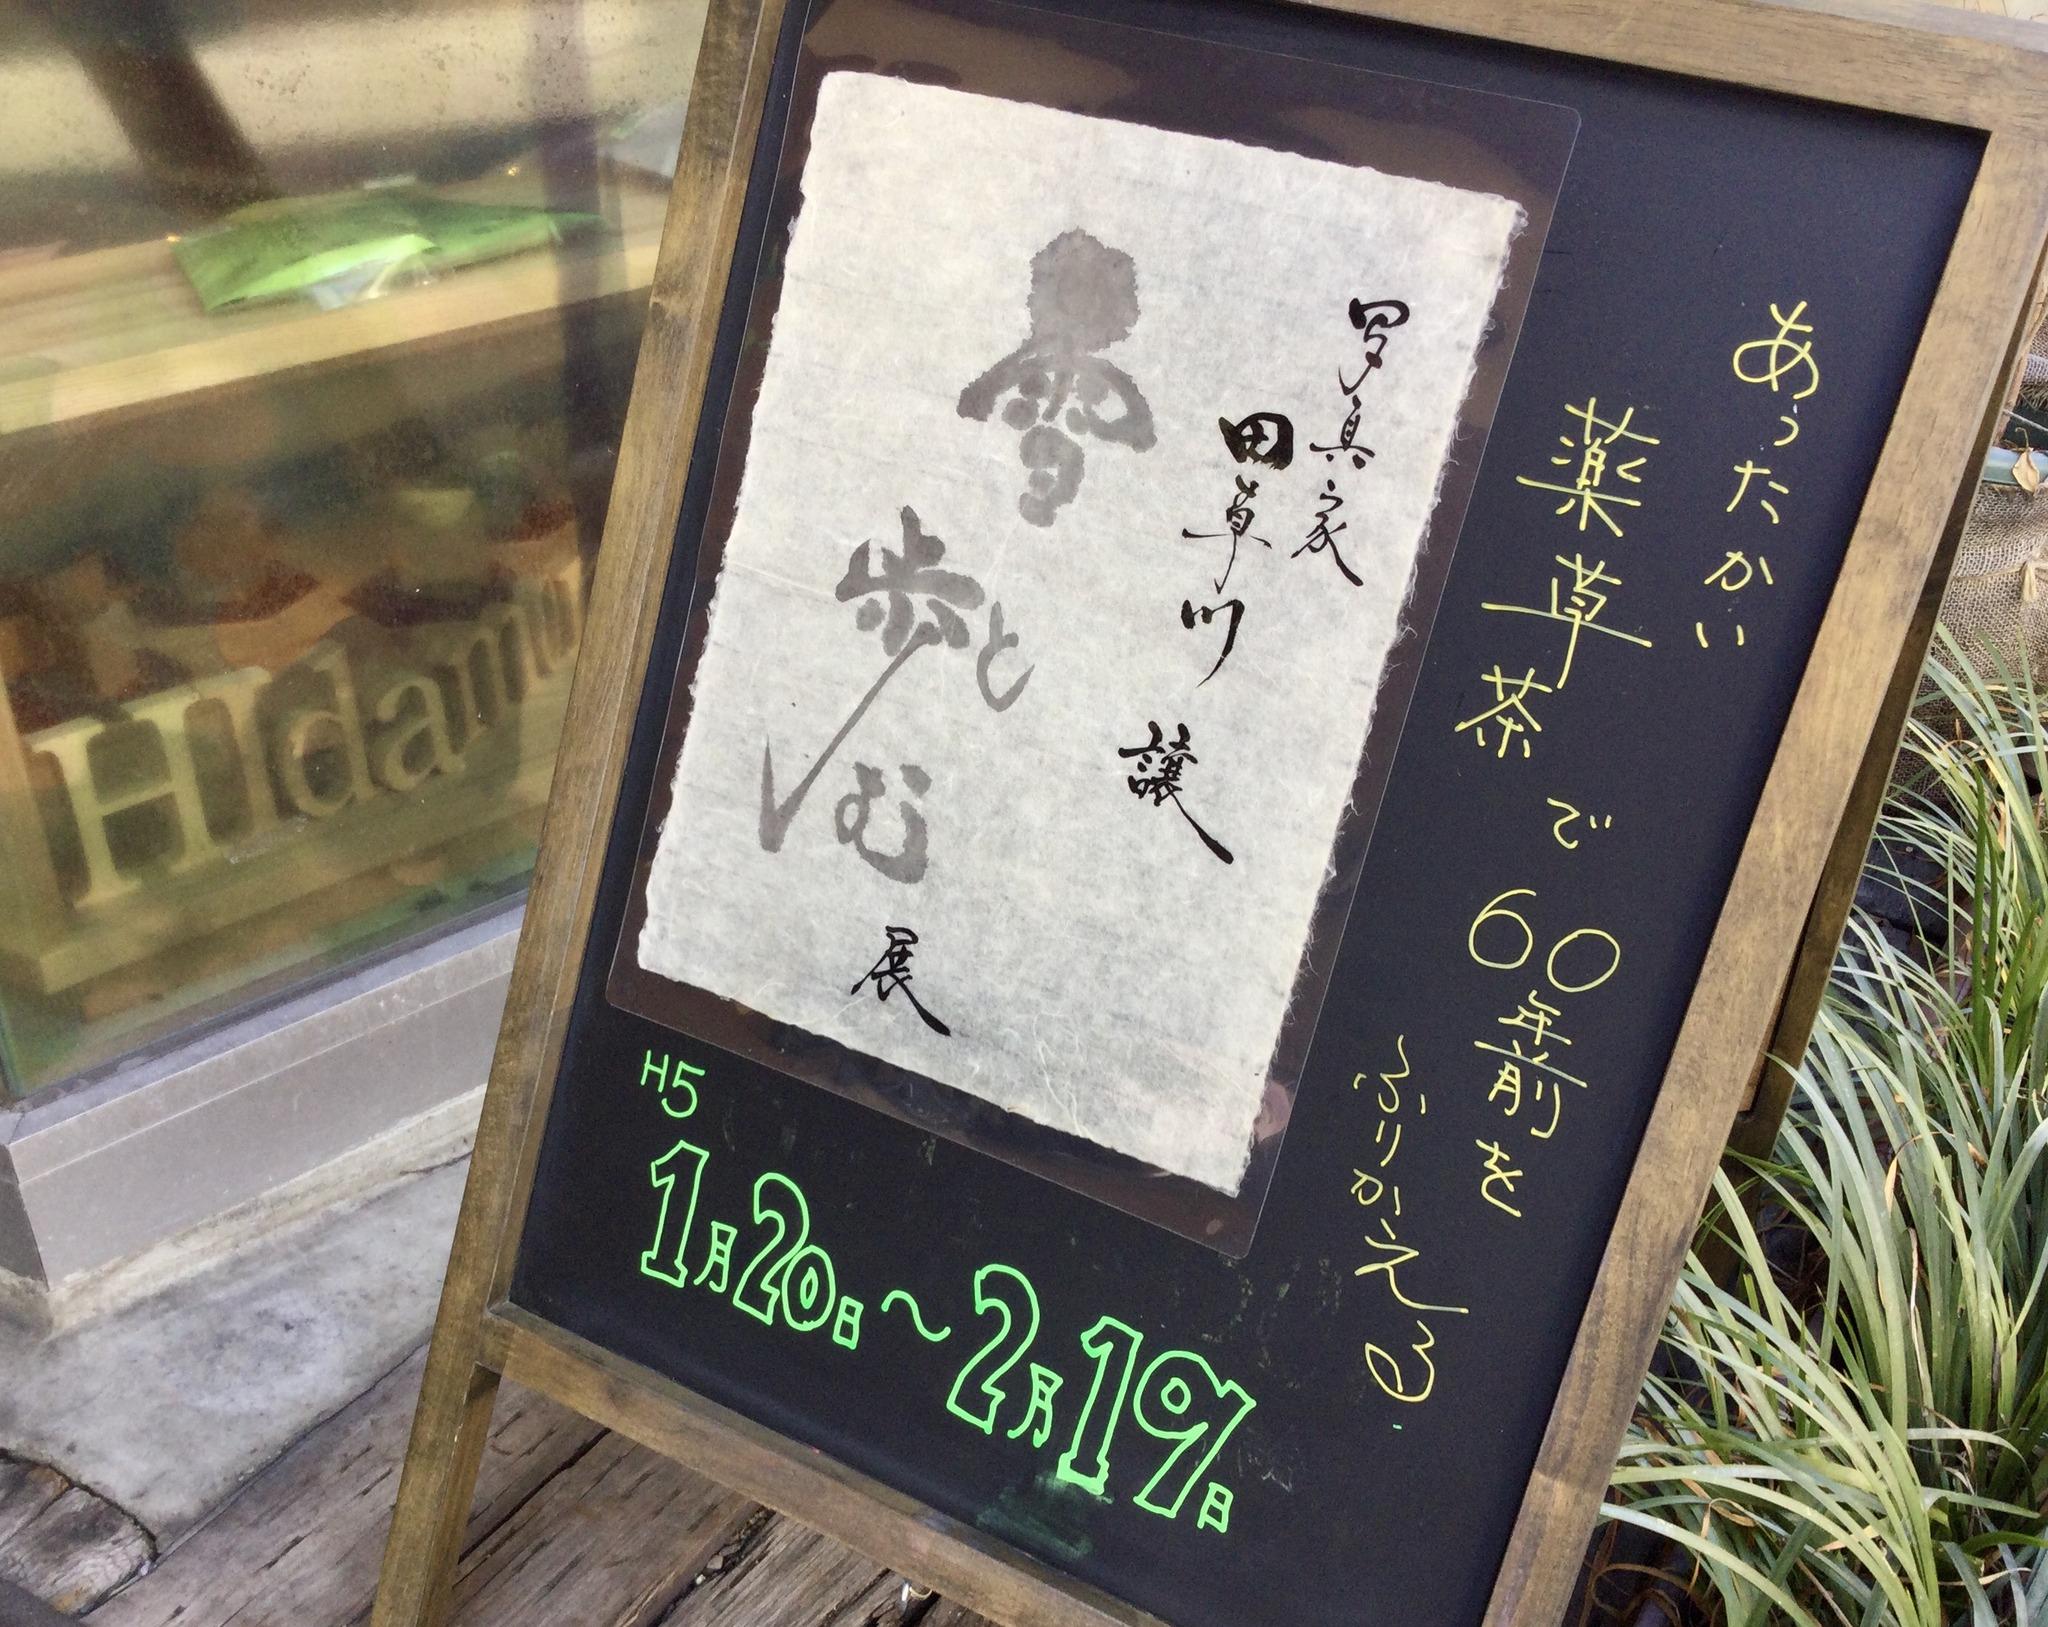 あったかい
薬草茶で60年前を
ふりかえる
写真家
田草川 譲
雪と
歩む
展
H5
1月20日〜2月19日
HIdamu